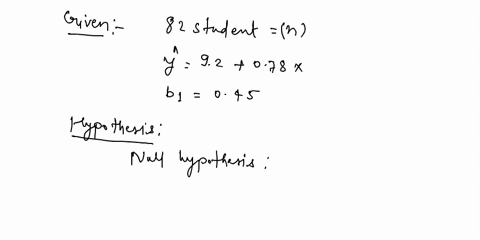 Given:- 82 student = (n)
ŷ = 9.2 + 0.78 x
b₁ = 0.45
Hypothesis:
Null hypothesis: